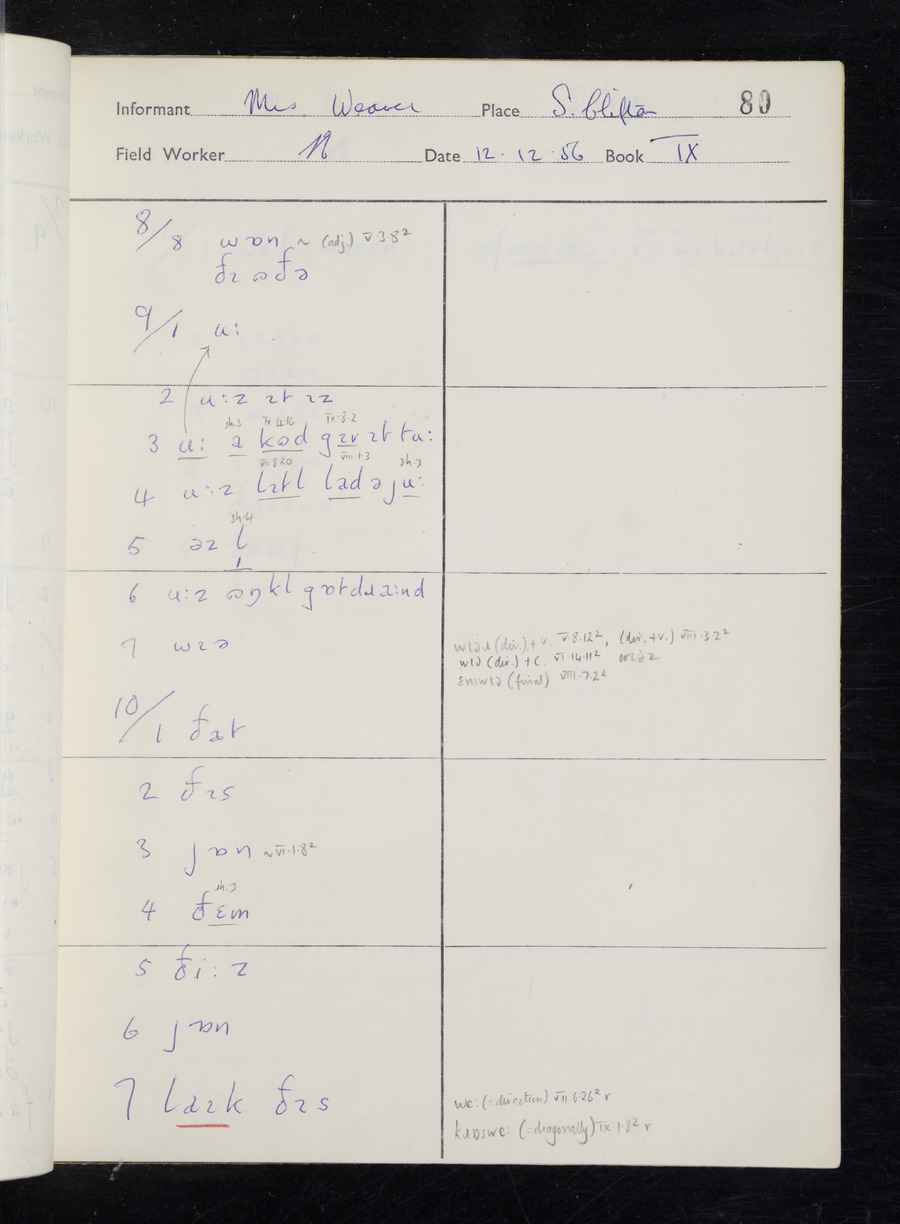 Informant Mrs Weaver Place S. Clifton 80
Field Worker N Date 12.12.56 Book IX
8/8 wɒn ~ (adj.) V.3.8²
ðɪ ɷðə
9/1 u:
2 u:z ɪt ɪz
sh.3 IX.4.16 IX.8.2
3 u: ə kɷd gɪv ɪt tu:
VII.8.20 VIII.1.3 sh.3
4 u:z lɪtl lad ə ju:
sh.4
5 əz l̩
6 u:z ɷŋkl gɒt dɹa:nd
7 wɪə
wɪəɹ (dir.) + V. V.8.12², (dir. + V.) VIII.3.2²
wɪə (dir.) + C. VI.14.11² wɪəz
ɛnɪwɪə (final) VIII.7.2²
10/1 ðat
2 ðɪs
3 jɒn ~ VI.1.8²
sh.3
4 ðɛm
5 ði:z
6 jɒn
7 laɪk ðɪs
we: (= direction) VII.6.26² r
kɹɒswe: (= diagonally) IX.1.8² r